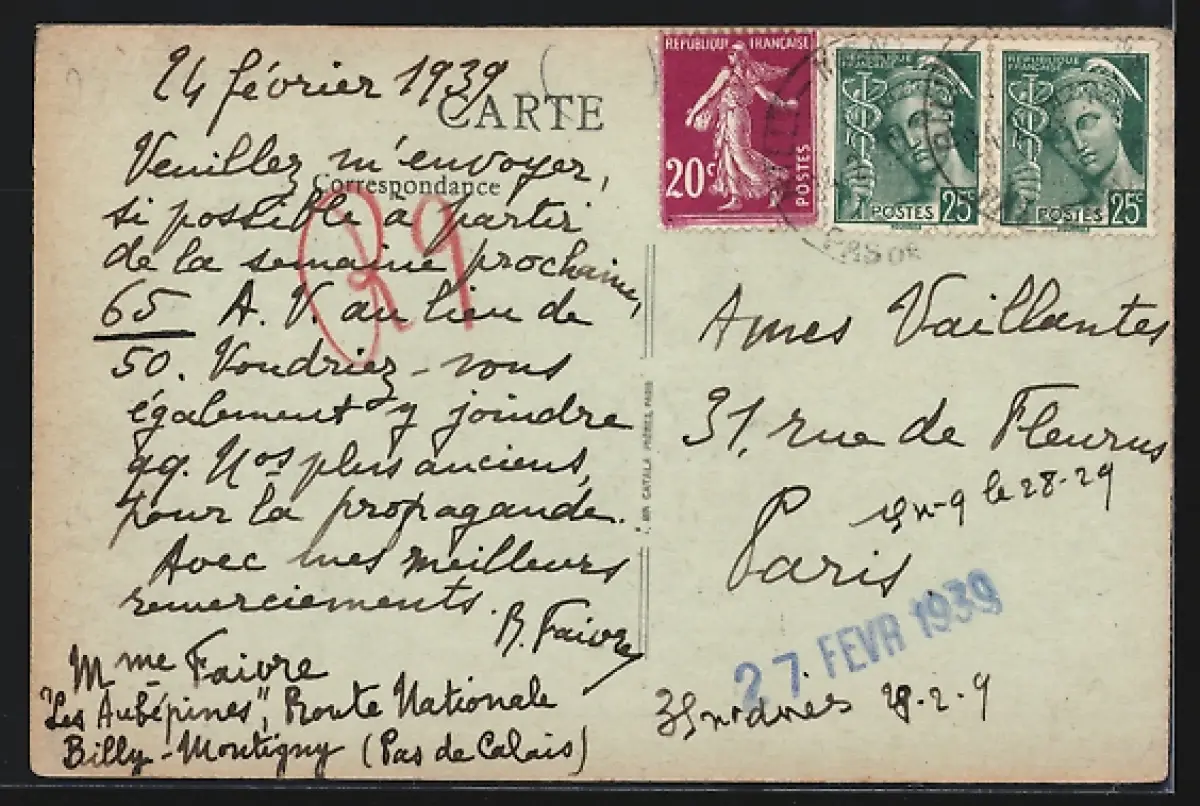 24 février 1939
CARTE
Correspondance
Veuillez m'envoyer,
si possible à partir
de la semaine prochaine,
65 A. V. au lieu de
50. Voudriez-vous
également y joindre
qq. Nos plus anciens,
pour la propagande.
Avec mes meilleurs
remerciements.
R. Faivre
Mme Faivre
"Les Aubépines", Route Nationale
Billy-Montigny (Pas de Calais)
REPUBLIQUE FRANÇAISE
20c
POSTES
REPUBLIQUE
FRANÇAISE
POSTES 25c
REPUBLIQUE
FRANÇAISE
POSTES 25c
PAS DE
Ames Vaillantes
31, rue de Fleurus
Paris.
le 28-29
27 FEVR 1939
28-2-9
CATALA FRÈRES, PARIS